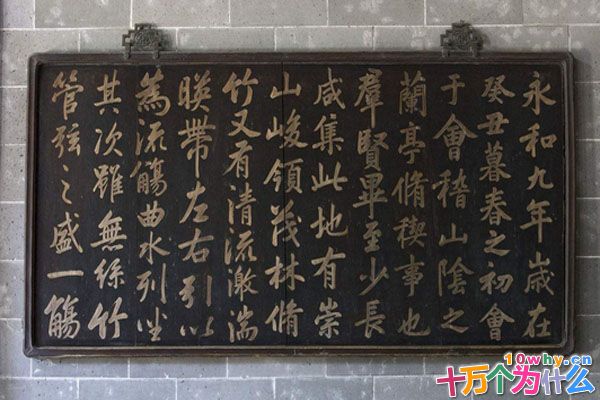 永和九年歲在
癸丑暮春之初會
于會稽山陰之
蘭亭脩稧事也
羣賢畢至少長
咸集此地有崇
山峻領茂林脩
竹又有清流激湍
暎帶左右引以
為流觴曲水列坐
其次雖無絲竹
管弦之盛一觴
10why.cn
十万个为什么